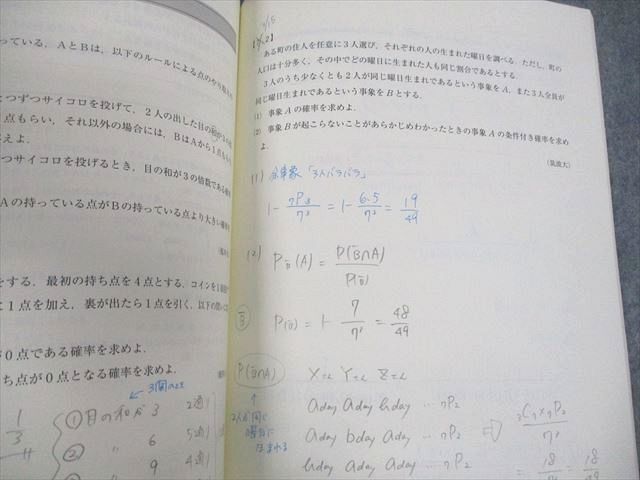 っている．AとBは，以下のルールによる点のやり取り
とつずつサイコロを投げて，2人の出した目の
点もらい，それ以外の場合には，BはAから1点も
えよ．
つサイコロを投げるとき，目の和が3の倍数である確率
Aの持っている点がBの持っている点より大きい確率を
をする．最初の持ち点を4点とする．コインを1回投
に1点を加え，裏が出たら1点を引く．以下の問いに
が0点である確率を求めよ．
ち点が0点となる確率を求めよ．
3個のとき
1/3
① 目の和が 3 2通り
② 〃 6 5通り
〃 9 4通り
3/15
ある町の住人を任意に3人選び，それぞれの人の生まれた曜日を調べる．ただし，町の
人口は十分多く，その中でどの曜日に生まれた人も同じ割合であるとする．
3人のうち少なくとも2人が同じ曜日生まれであるという事象をA，また3人全員が
同じ曜日生まれであるという事象をBとする．
(1) 事象Aの確率を求めよ．
(2) 事象Bが起こらないことがあらかじめわかったときの事象Aの条件付き確率を求め
よ．
(筑波大)
(1) 余事象「3人バラバラ」
1 - 7P3/7³ = 1 - 6·5/7² = 19/49
(2) P_B̄(A) = P(B̄∩A)/P(B̄)
B̄ P(B̄) = 1 - 7/7³ = 48/49
P(B̄∩A) X=2 Y=2 Z=2
↑
2人が同じ
曜日に
生まれる
a day a day b day … 7P2
a day b day a day … 7P2
b day a day a day … 7P2
⇒ 3C1×7P2/7³
= 18/ = 18/